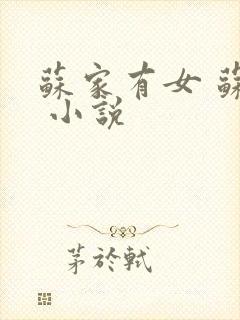 蘇家有女 蘇
小說
茅於軾